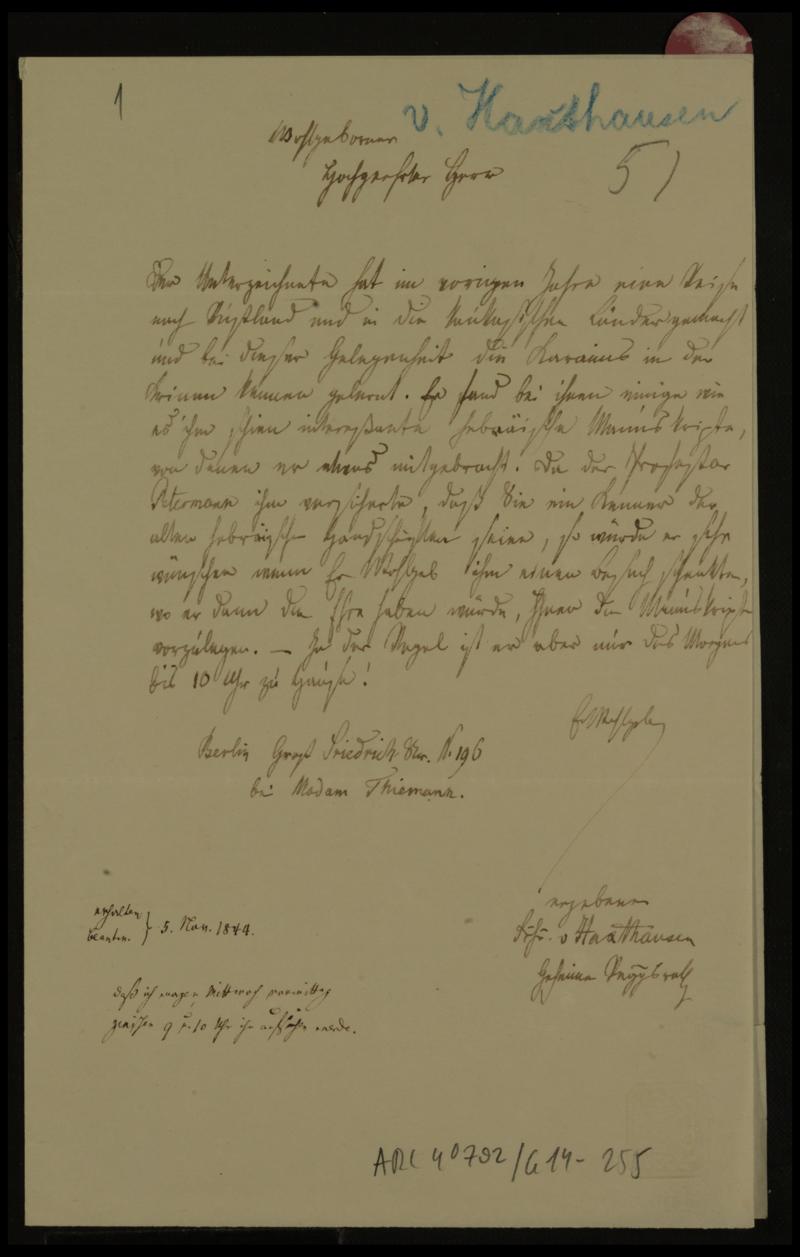 1
v. Haxthausen
Wohlgeborner
Hochgeehrter Herr
5)
Der Unterzeichnete hat im vorigen Jahre eine Reise
nach Rußland und in die kaukasischen Länder gemacht
und bei dieser Gelegenheit die Karaims in der
Krimm kennen gelernt. Er fand bei ihnen einige wie
es ihm schien interessante hebräische Manuskripte,
von denen er etwas mitgebracht. Da der Professor
Petermann ihm versicherte, daß Sie ein Kenner der
alten hebräischen Handschriften seien, so würde er sehr
wünschen wenn Ew Wohlgeb ihm einen Besuch schenkten,
wo er dann die Ehre haben würde, Ihnen die Manuskripte
vorzulegen. — In der Regel ist er aber nur des Morgens
bis 10 Uhr zu Hause!
Ew Wohlgeb
Berlin Groß Friedrich Str. N. 196
bei Madam Thiemann.
ergebener
Frhr. v Haxthausen
Geheimer Reggsrath
erhalten
beantw. } 5. Nov. 1844.
daß ich morgen Mittwoch vormittag
zwischen 9 u. 10 Uhr ihn aufsuchen werde.
ARC 4°792/G14-255